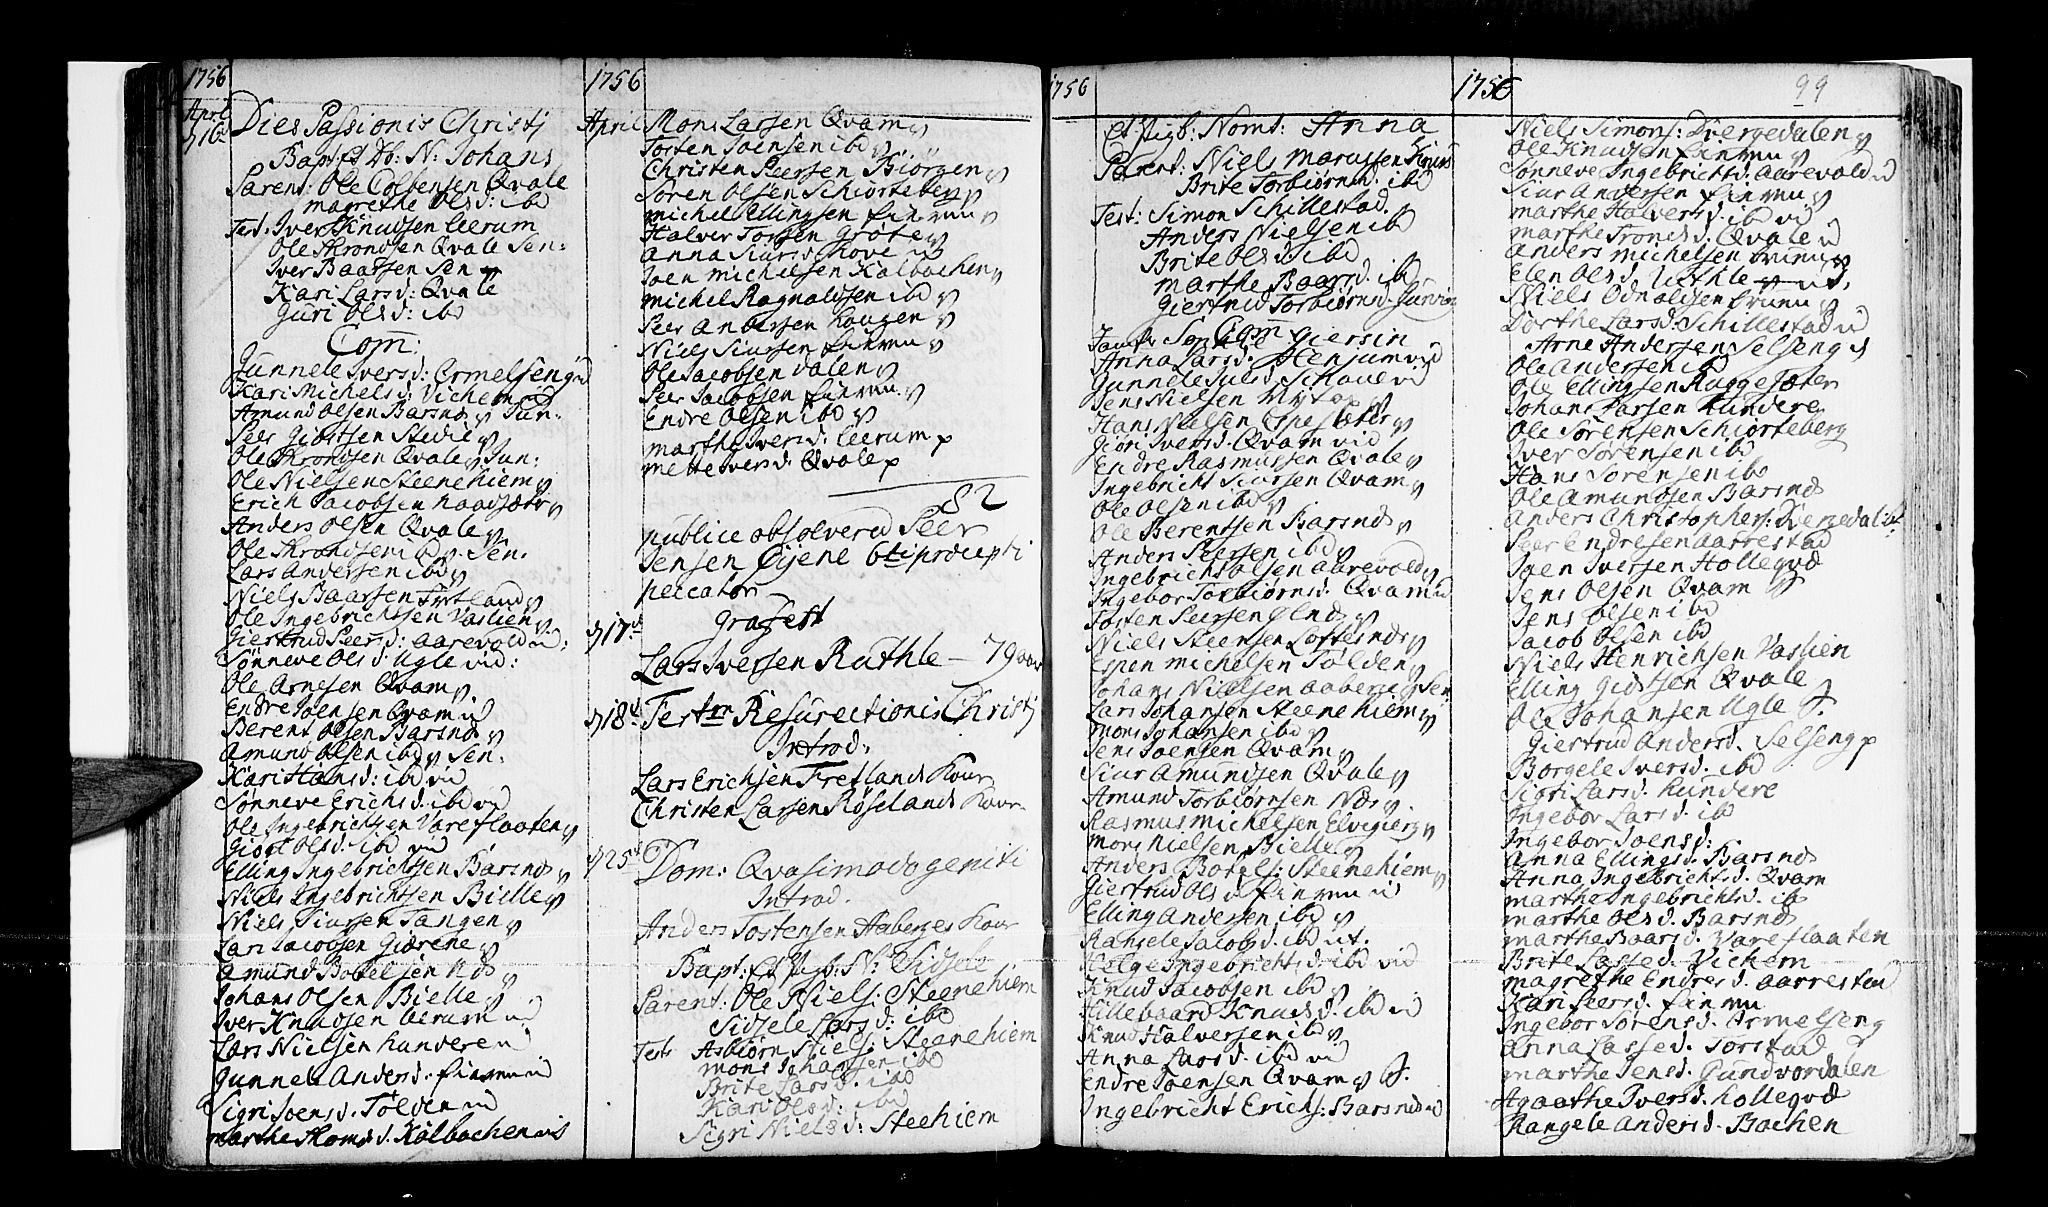 1756
April
d 16d
Dies Passionis Christj
Bapt: et Db: N: Johans
Parent: Ole Colbensen Qvale
magrethe Olsd: ibd
Test: Iver Knudsen Leerum
Ole Throndsen Qvale Sen:
Iver Baarsen Sen
Kari Larsd: Qvale
Guri Olsd: ibd
Com:
Gunnele Iversd: Ormelseng
Kari Michelsd: Vichem
Amund Olsen Barsnes Jun:
Peer Giostsen Stedie
Ole Throndsen Qvale Jun:
Ole Nielsen Steenehiem
Erich Jacobsen
Anders Olsen Qvale
Ole Throndsen ibd Sen.
Lars Andersen ibd
Niels Baarsen
Ole Ingebrichtsen Vaslien
Giertrud Peersd: Aarevold
Sønneve Olsd. Ugle vid:
Ole Arnesen Qvam
Endre Joensen Qvam
Berent Olsen Barsnes
Amund Olsen ibd Sen.
Kari Hansd: ibd vid
Sønneve Erichsd. ibd vid
Ole Ingebrichtsen Vareflaaten
Giori Olsd: ibd vid
Elling Ingebrichtsen Barsnes
Niels Ingebrichtsen Bielle
Niels Siursen Tangen
Lars Jacobsen Giærene
Amund Botelsen
Johans Olsen Bielle
Iver Knudsen Leerum
Lars Nielsen Kundere
Gunnele Andersd.
Sigri Joensd. Tølden
marthe Thomsd. Kalbachen
1756
April
Mons Larsen Qvam
Tosten Joensen ibd
Christen Peersen Biørgen
Søren Olsen Schiorteberg
michel Ellingsen
Halver Torsen Grøte
Anna Siursd Hove
Joen michelsen Kalbachen
michel Ragnaldsen ibd
Peer Andersen Hougen
Niels Siursen
Ole Jacobsen dalen
Peer Jacobsen
Endre Olsen ibd
marthe Iversd: Leerum p
mette Iversd: Qvale p
82
publice absolvered Peer
Jensen Eijene 6ti præcepti
peccator
d 17d
Grafest
Lars Iversen Ruthle – 79 aar
d 18d
Fest Resurectionis Christj
Introd:
Lars Erichsen Fretland Kour
Christen Larsen Røseland Kour
d 25d
Dom: Qvasimodogeniti
Introd.
Anders Tostensen Aaberges Kour
Bapt: et Vigb: N: Sidsele
Parent: Ole Niels: Steenehiem
Sidsele Larsd: ibd
Test: Asbiørn Niels: Steenehiem
mons Johansen ibd
Brite Larsd. ibd
Kari Olsd: ibd
Sigri Nielsd: Steehiem
1756
Et Vigb: Nomt: Anna
Parent: Niels
Brite Torbiørnsd. ibd
Test: Simon Schillestad.
Anders Nielsen ibd
Brite Olsd: ibd
marthe Baarsd. ibd
Giertrud Torbiørnsd.
Com
Anna Larsd. Stenjum vid
Gunnele Julsd
Jens Nielsen
Hans Nielsen Espesæter
Giori Iversd: Qvam vid
Endre Rasmussen Qvale
Ingebricht Siursen Qvam
Ole Olsen ibd
Ole Berentsen Barsnes
Anders Peersen ibd
Ingebricht Olsen Aarevold
Ingebor Torbiørnsd: Qvam
Tosten Peersen
Niels Steensen Loftesnes
Espen michelsen Tølden
Johans Nielsen Aaberge Sen
Lars Johansen Steenehiem
mons Johansen ibd
Jens Joensen Qvam
Siur Amundsen Qvale
Amund Torbiørnsen Næs
Rasmus michelsen Elvegierg
mons Nielsen Bielle
Anders Botels: Steenehiem
Giertrud Olsd
Elling Andersen ibd
Rangele Jacobsd. ibd
Helge Ingebrichtsd: ibd vid
Knud Jacobsen ibd
Hillebaard Knudsd. ibd
Knud Halversen ibd
Anna Larsd. ibd vid
Endre Joensen Qvam
Ingebricht Erichs: Barsnes
1756
99
Niels Simons: Dvergedalen
Ole Knudsen
Sønneve Ingebrichtsd: Aarevold
Siur Andersen
marthe Halversd. ibd vid
marthe Tronsd. Qvale
Anders michelsen
Elen Olsd.
Niels Odnaldsen
Dorthe Larsd: Schillestad
Arne Andersen Selseng
Ole Andersen ibd
Ole Ellingsen Ruggesæter
Johans Larsen Kundere
Ole Sørensen Schiorteberg
Iver Sørensen ibd
Hans Sørensen ibd
Ole Amundsen Barsnes
Anders Christophers: Dvergedalen
Peer Endresen Aarrestad
Joen Iversen Holleqvd
Jens Olsen Qvam
Jens Olsen ibd
Jacob Olsen ibd
Niels Henrichsen Vaslien
Elling Giostsen Qvale
Ole Johansen Ugle
Giertrud Andersd. Selseng p
Borgele Iversd. ibd
Sigri Larsd. Kundere
Ingebor Larsd. ibd
Ingebor Joensd:
Anna Ellingsd. Barsnes
Anna Ingebrichtsd. Qvam
marthe Ingebrichtsd. ib
marthe Olsd. Barsnes
marthe Baarsd. Vareflaaten
Brite Lassed. Vichem
magrethe Endresd. Aarrestad
Kari Peersd.
Ingebor Sørensd. Ormelseng
Anna Lassed. Torstad
marthe Jensd. Gundvordalen
Agaathe Iversd. Holleqvd
Rangele Andersd. Bachen